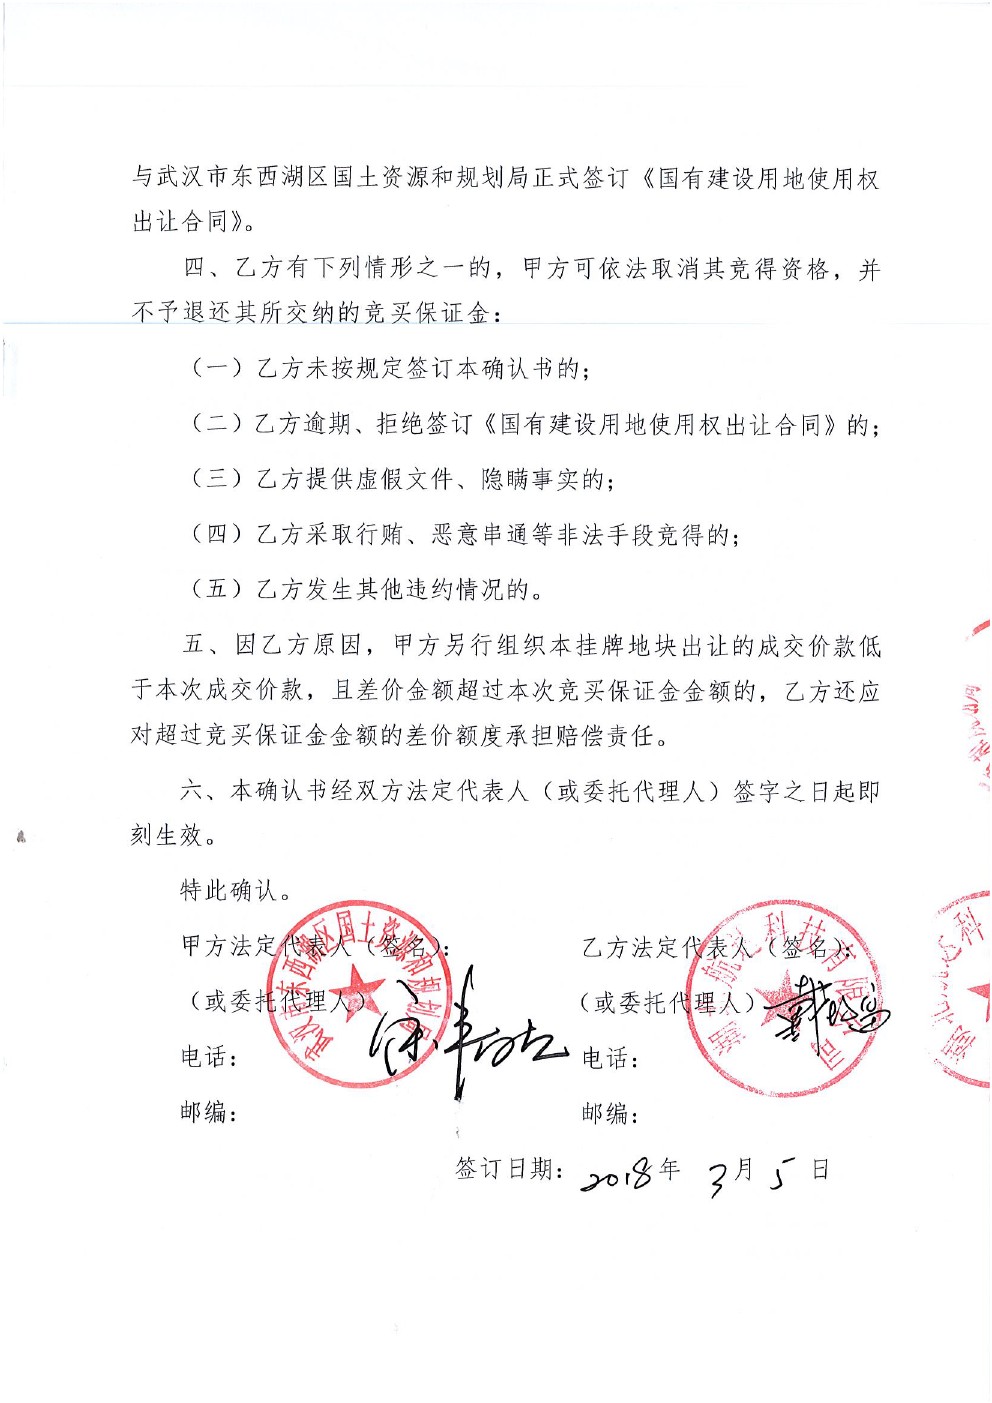 与武汉市东西湖区国土资源和规划局正式签订《国有建设用地使用权
出让合同》。
四、乙方有下列情形之一的，甲方可依法取消其竞得资格，并
不予退还其所交纳的竞买保证金：
（一）乙方未按规定签订本确认书的；
（二）乙方逾期、拒绝签订《国有建设用地使用权出让合同》的；
（三）乙方提供虚假文件、隐瞒事实的；
（四）乙方采取行贿、恶意串通等非法手段竞得的；
（五）乙方发生其他违约情况的。
五、因乙方原因，甲方另行组织本挂牌地块出让的成交价款低
于本次成交价款，且差价金额超过本次竞买保证金金额的，乙方还应
对超过竞买保证金金额的差价额度承担赔偿责任。
六、本确认书经双方法定代表人（或委托代理人）签字之日起即
刻生效。
特此确认。
武汉市东西湖区国土资源和规划局
甲方法定代表人（签名）： 乙方法定代表人（签名）：
（或委托代理人） （或委托代理人）
电话： 电话：
邮编： 邮编：
签订日期：2018年 3月 5 日
科技有限公司